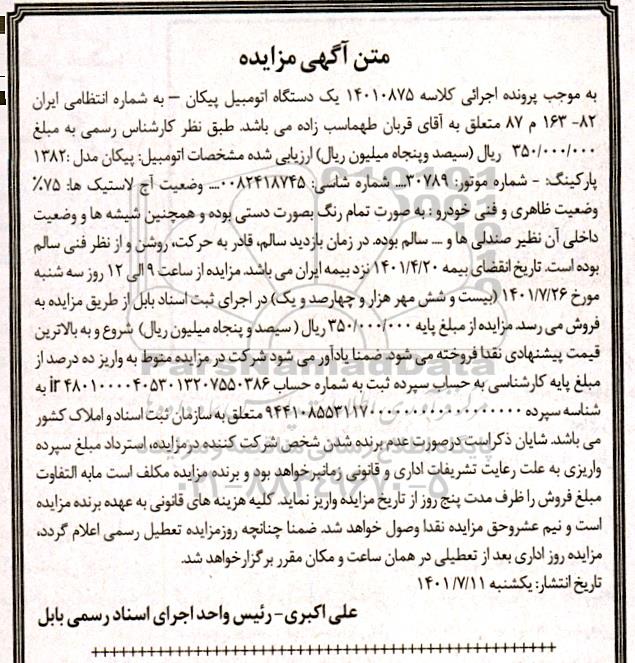 متن آگهی مزایده
به موجب پرونده اجرائی کلاسه ۱۴۰۱۰۸۷۵ یک دستگاه اتومبیل پیکان – به شماره انتظامی ایران
۸۲- ۱۶۳ م ۸۷ متعلق به آقای قربان طهماسب زاده می باشد. طبق نظر کارشناس رسمی به مبلغ
۳۵۰/۰۰۰/۰۰۰ ریال (سیصد وپنجاه میلیون ریال) ارزیابی شده مشخصات اتومبیل: پیکان مدل :۱۳۸۲
پارکینگ: - شماره موتور: ۳۰۷۸۹.... شماره شاسی: ۰۰۸۲۴۱۸۷۴۵.... وضعیت آج لاستیک ها: ۷۵٪
وضعیت ظاهری و فنی خودرو : به صورت تمام رنگ بصورت دستی بوده و همچنین شیشه ها و وضعیت
داخلی آن نظیر صندلی ها و .... سالم بوده. در زمان بازدید سالم، قادر به حرکت، روشن و از نظر فنی سالم
بوده است. تاریخ انقضای بیمه ۱۴۰۱/۴/۲۰ نزد بیمه ایران می باشد. مزایده از ساعت ۹ الی ۱۲ روز سه شنبه
مورخ ۱۴۰۱/۷/۲۶ (بیست و شش مهر هزار و چهارصد و یک) در اجرای ثبت اسناد بابل از طریق مزایده به
فروش می رسد. مزایده از مبلغ پایه ۳۵۰/۰۰۰/۰۰۰ ریال ( سیصد و پنجاه میلیون ریال) شروع و به بالاترین
قیمت پیشنهادی نقدا فروخته می شود. ضمنا یادآور می شود شرکت در مزایده منوط به واریز ده درصد از
مبلغ پایه کارشناسی به حساب سپرده ثبت به شماره حساب ir ۴۸۰۱۰۰۰۰۴۰۵۳۰۱۳۲۰۷۵۵۰۳۸۶ به
شناسه سپرده متعلق به سازمان ثبت اسناد و املاک کشور
می باشد. شایان ذکراست درصورت عدم برنده شدن شخص شرکت کننده درمزایده، استرداد مبلغ سپرده
واریزی به علت رعایت تشریفات اداری و قانونی زمانبرخواهد بود و برنده مزایده مکلف است مابه التفاوت
مبلغ فروش را ظرف مدت پنج روز از تاریخ مزایده واریز نماید. کلیه هزینه های قانونی به عهده برنده مزایده
است و نیم عشروحق مزایده نقدا وصول خواهد شد. ضمنا چنانچه روزمزایده تعطیل رسمی اعلام گردد،
مزایده روز اداری بعد از تعطیلی در همان ساعت و مکان مقرر برگزارخواهد شد.
تاریخ انتشار: یکشنبه ۱۴۰۱/۷/۱۱
علی اکبری- رئیس واحد اجرای اسناد رسمی بابل
ParsNamadData
۰۲۱-۸۸۳۴۹۶۷۰-۵